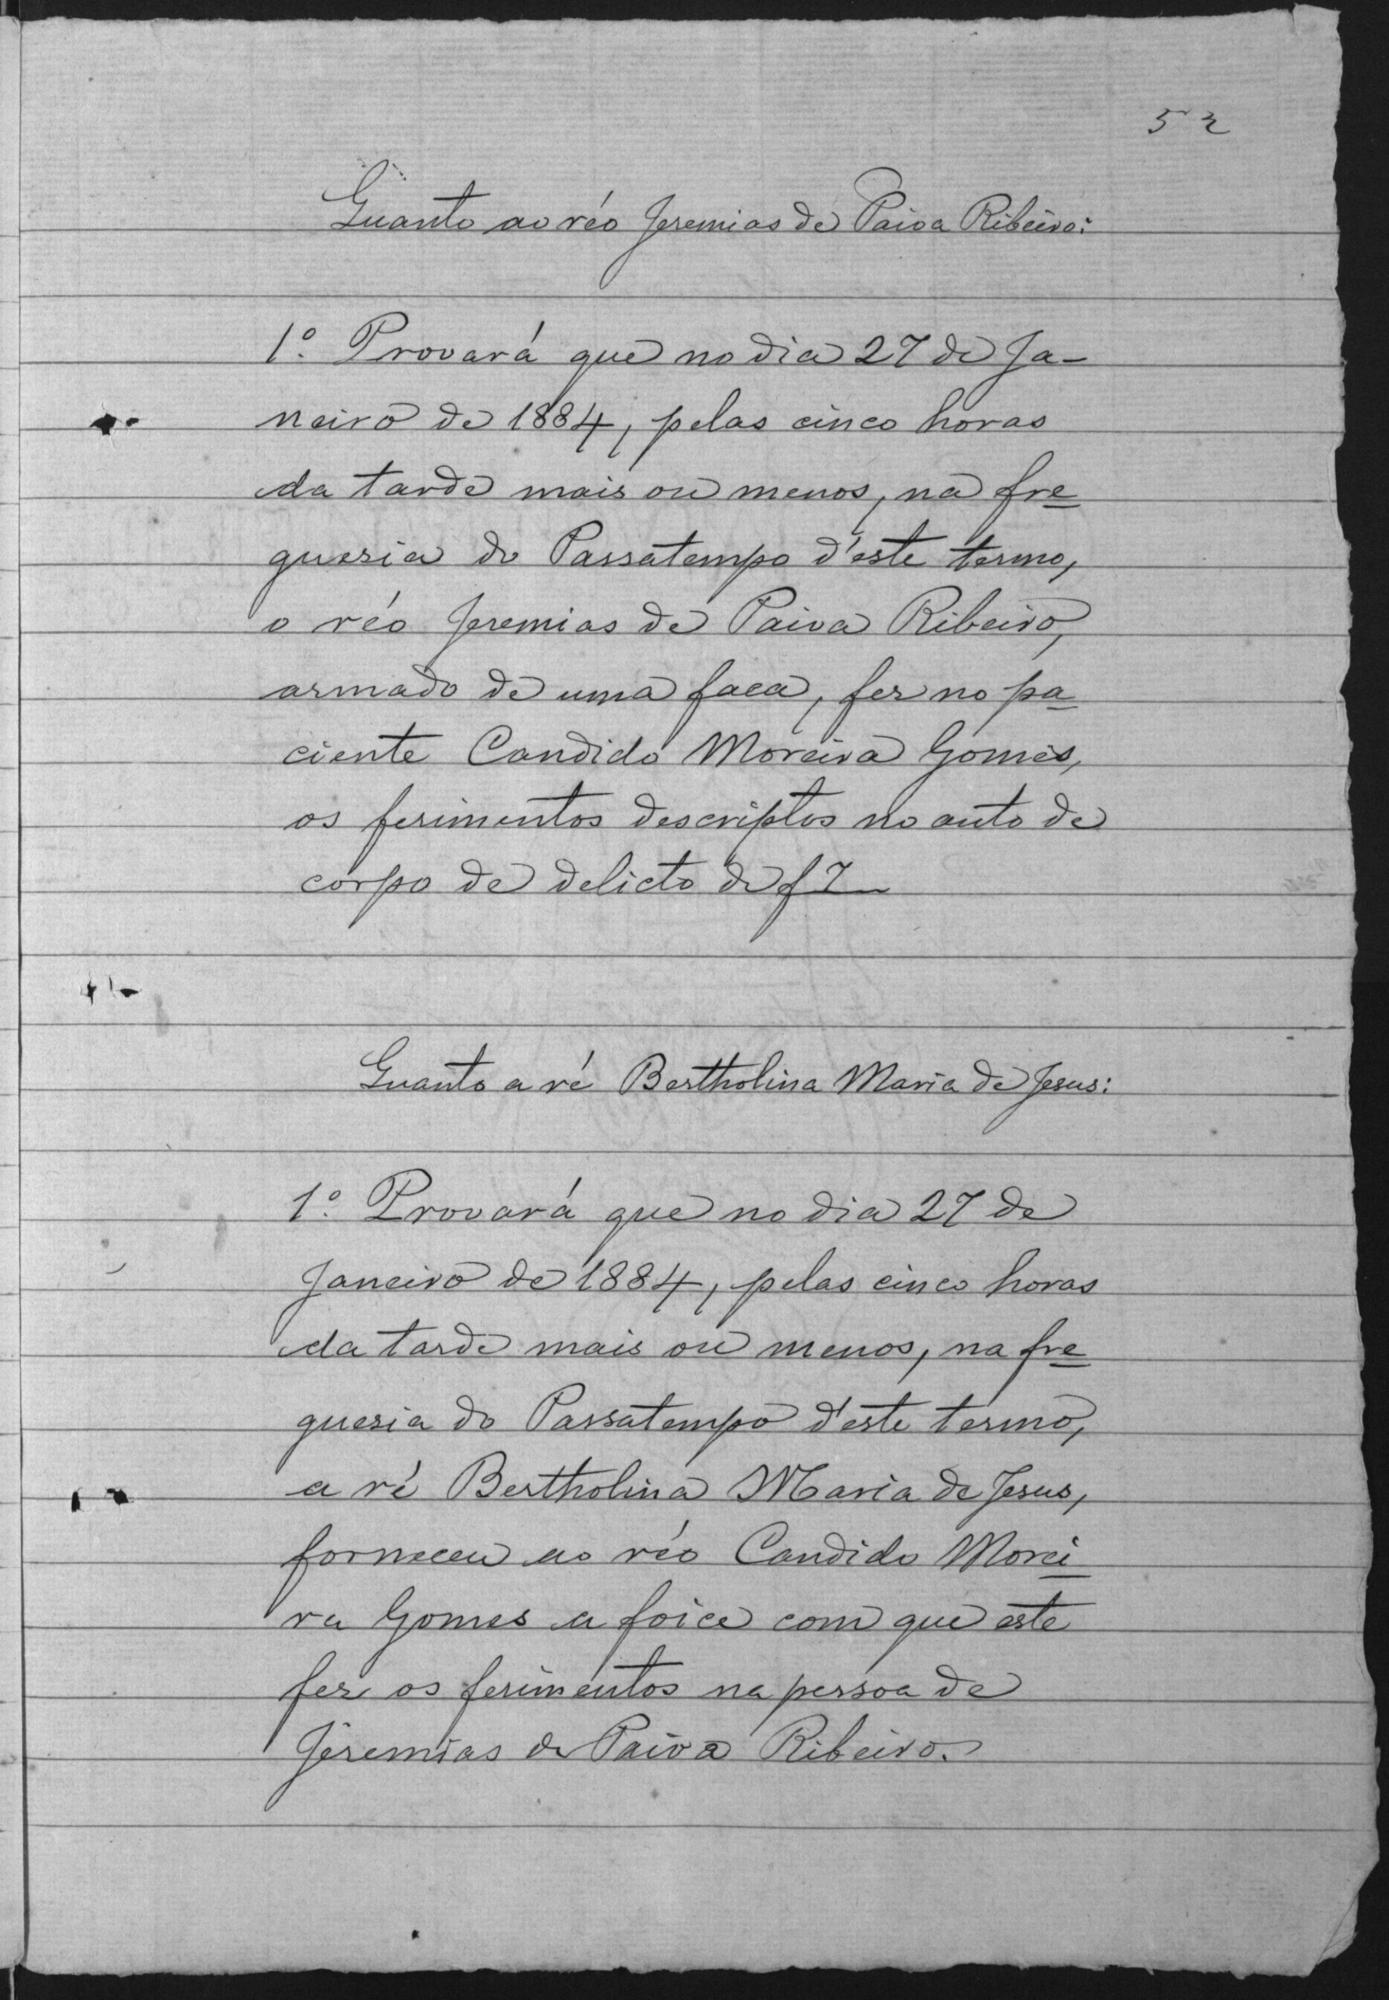 52
Quanto ao réo Jeremias de Paiva Ribeiro:
1º. Provará que no dia 27 de Ja-
neiro de 1884, pelas cinco horas
da tarde mais ou menos, na fre
guesia do Passatempo d'este termo,
o réo Jeremias de Paiva Ribeiro,
armado de uma faca, fez no pa
ciente Candido Moreira Gomes,
os ferimentos descriptos no auto de
corpo de delicto de f 7
Quanto a ré Bertholina Maria de Jesus:
1º. Provará que no dia 27 de
Janeiro de 1884, pelas cinco horas
da tarde mais ou menos, na fre
guesia do Passatempo d'este termo,
a ré Bertholina Maria de Jesus,
forneceu ao réo Candido Morei
ra Gomes a foice com que este
fez os ferimentos na pessoa de
Jeremias de Paiva Ribeiro.